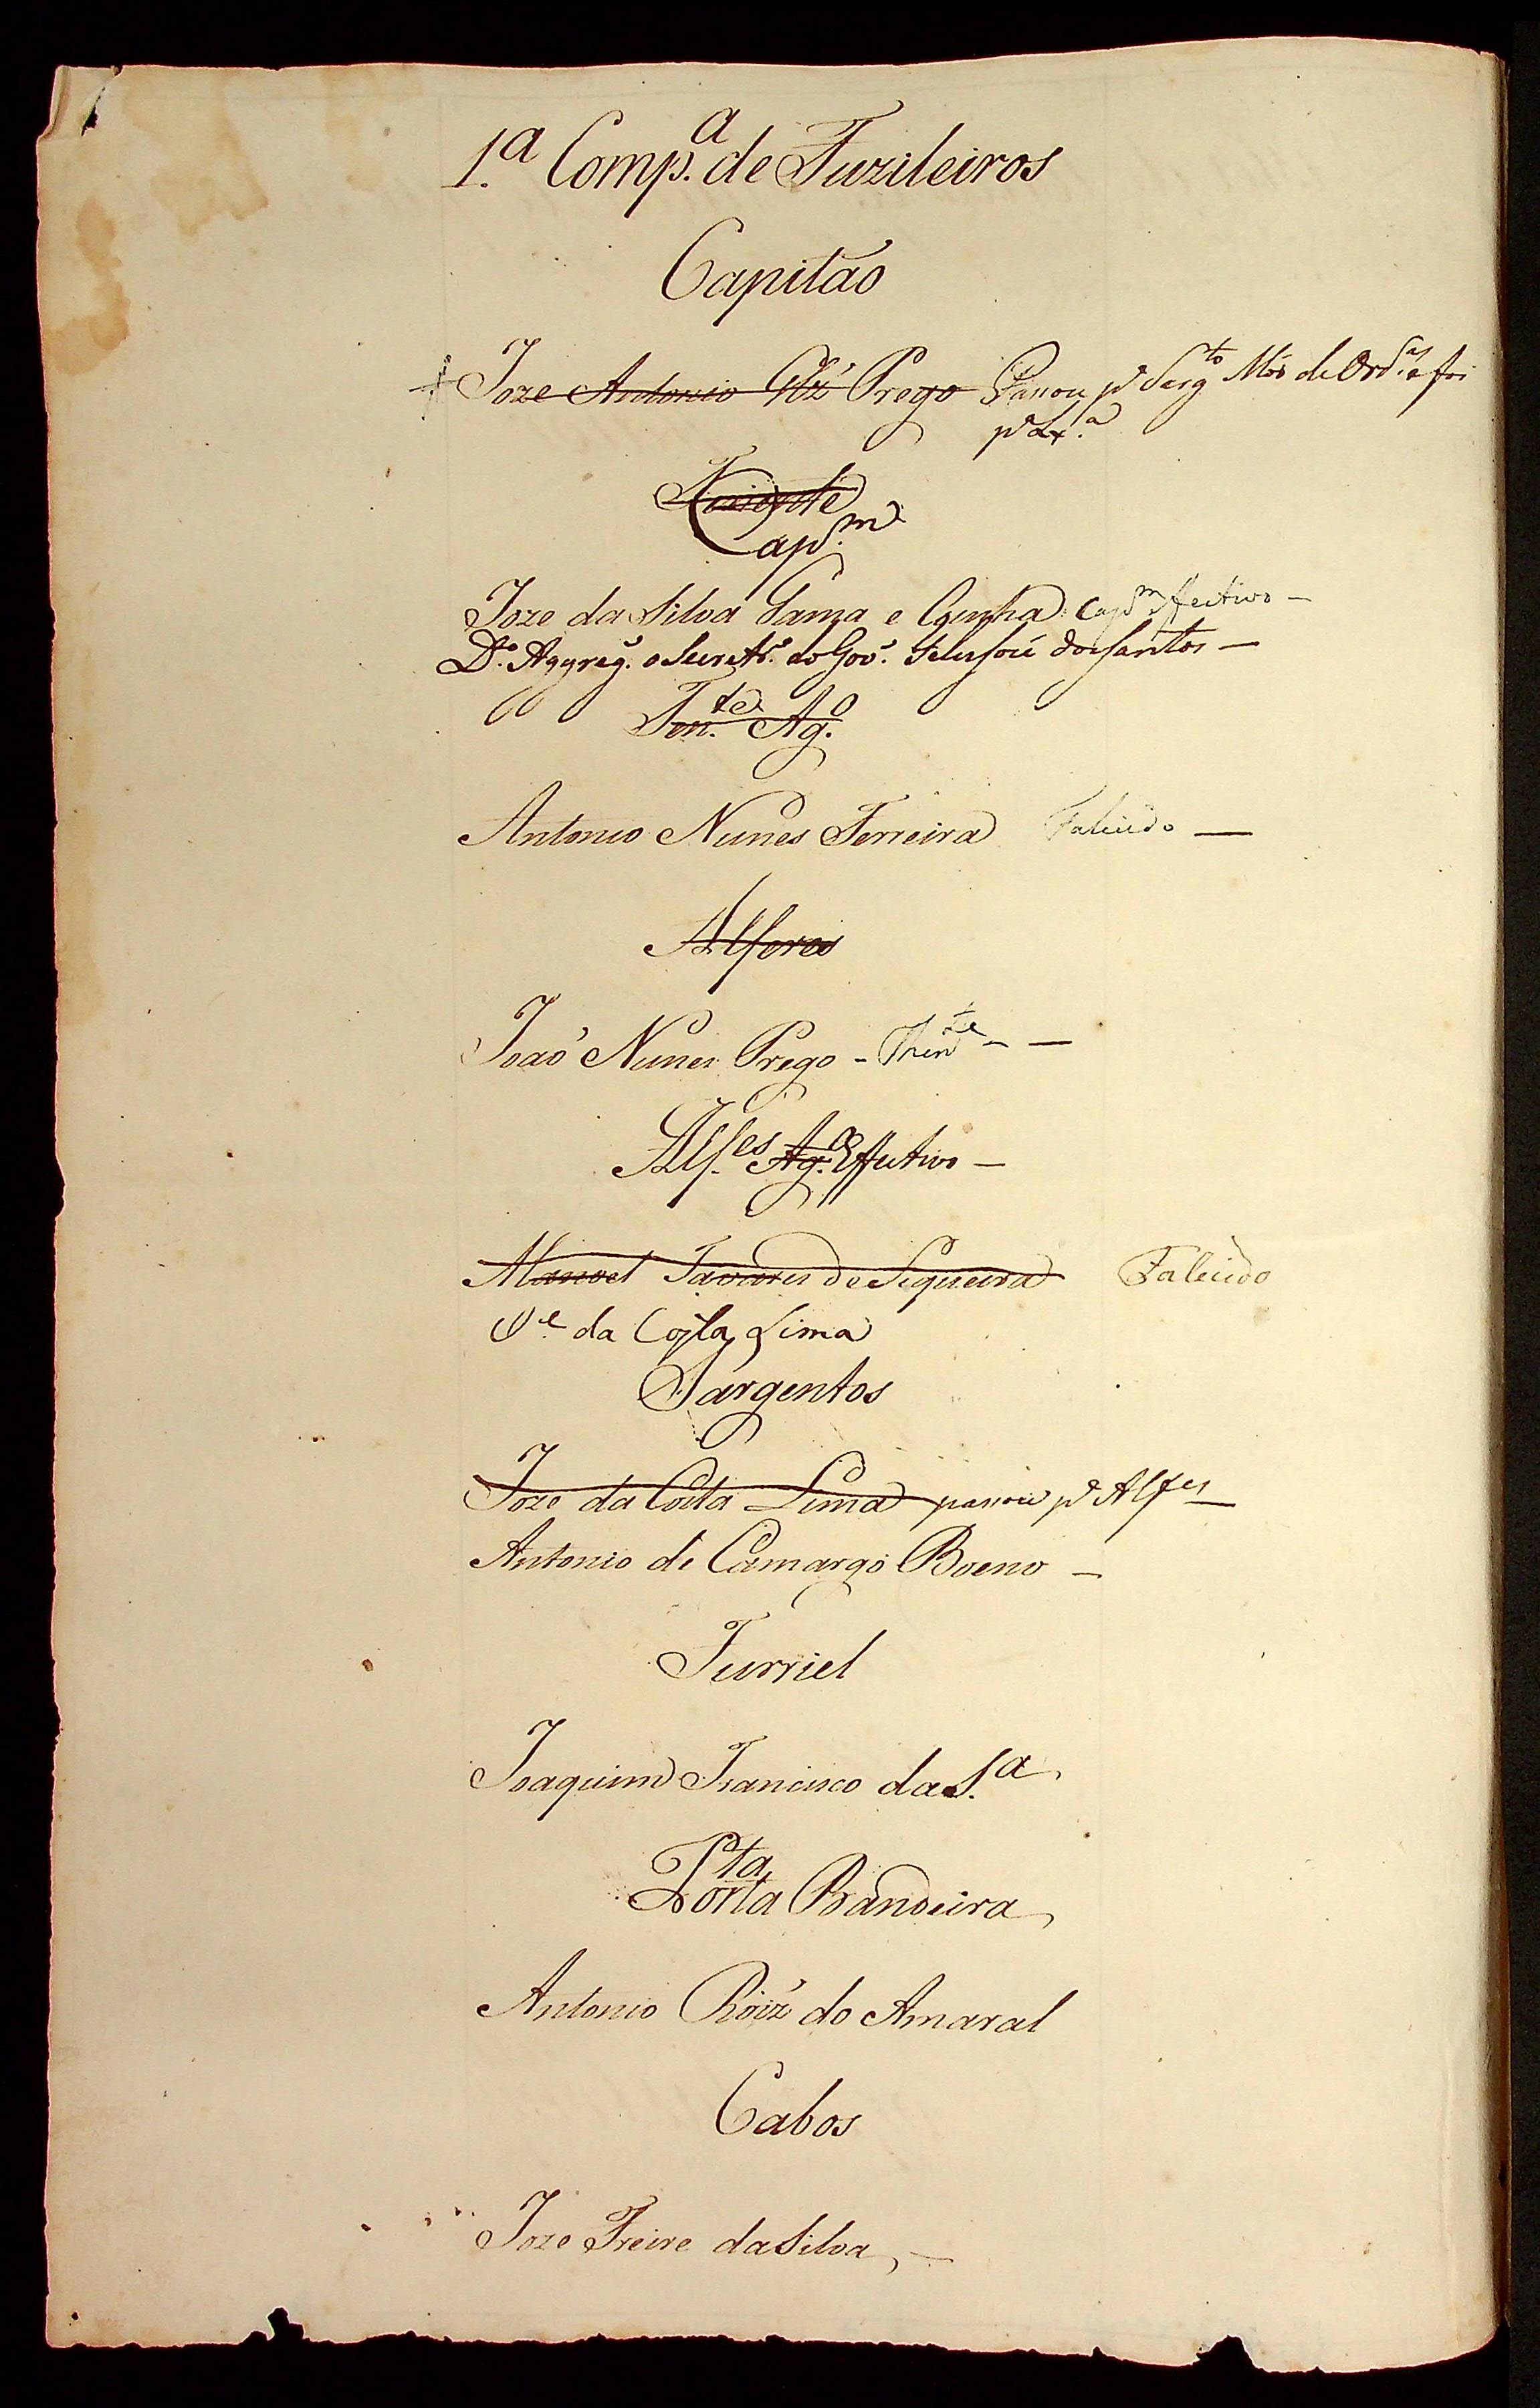 1.ª Comp.ª de Fuzileiros
Capitão
Joze Antonio Prego Passou pª Sargto Mór de Ordas e foi
pª Lxª
Tenente
Capm
Joze da Silva Gama e Cunha Capm Efectivo —
Do. Aggrego. o Secreto. do Govo. dos Santos —
Ten.te Ag.o
Antonio Nunes Ferreira Falecido —
Alferes
João Nunes Prego - Thente —
Alf.es Ag.o Effectivo —
Manoel Tavares de Siqueira Falecido
Je da Costa Lima
Sargentos
Joze da Costa Lima passou pª Alfes
Antonio de Camargo Boeno —
Furriel
Joaquim Francisco da S.ª
Pta
Porta Bandeira
Antonio Roiz do Amaral
Cabos
Joze Freire da Silva —